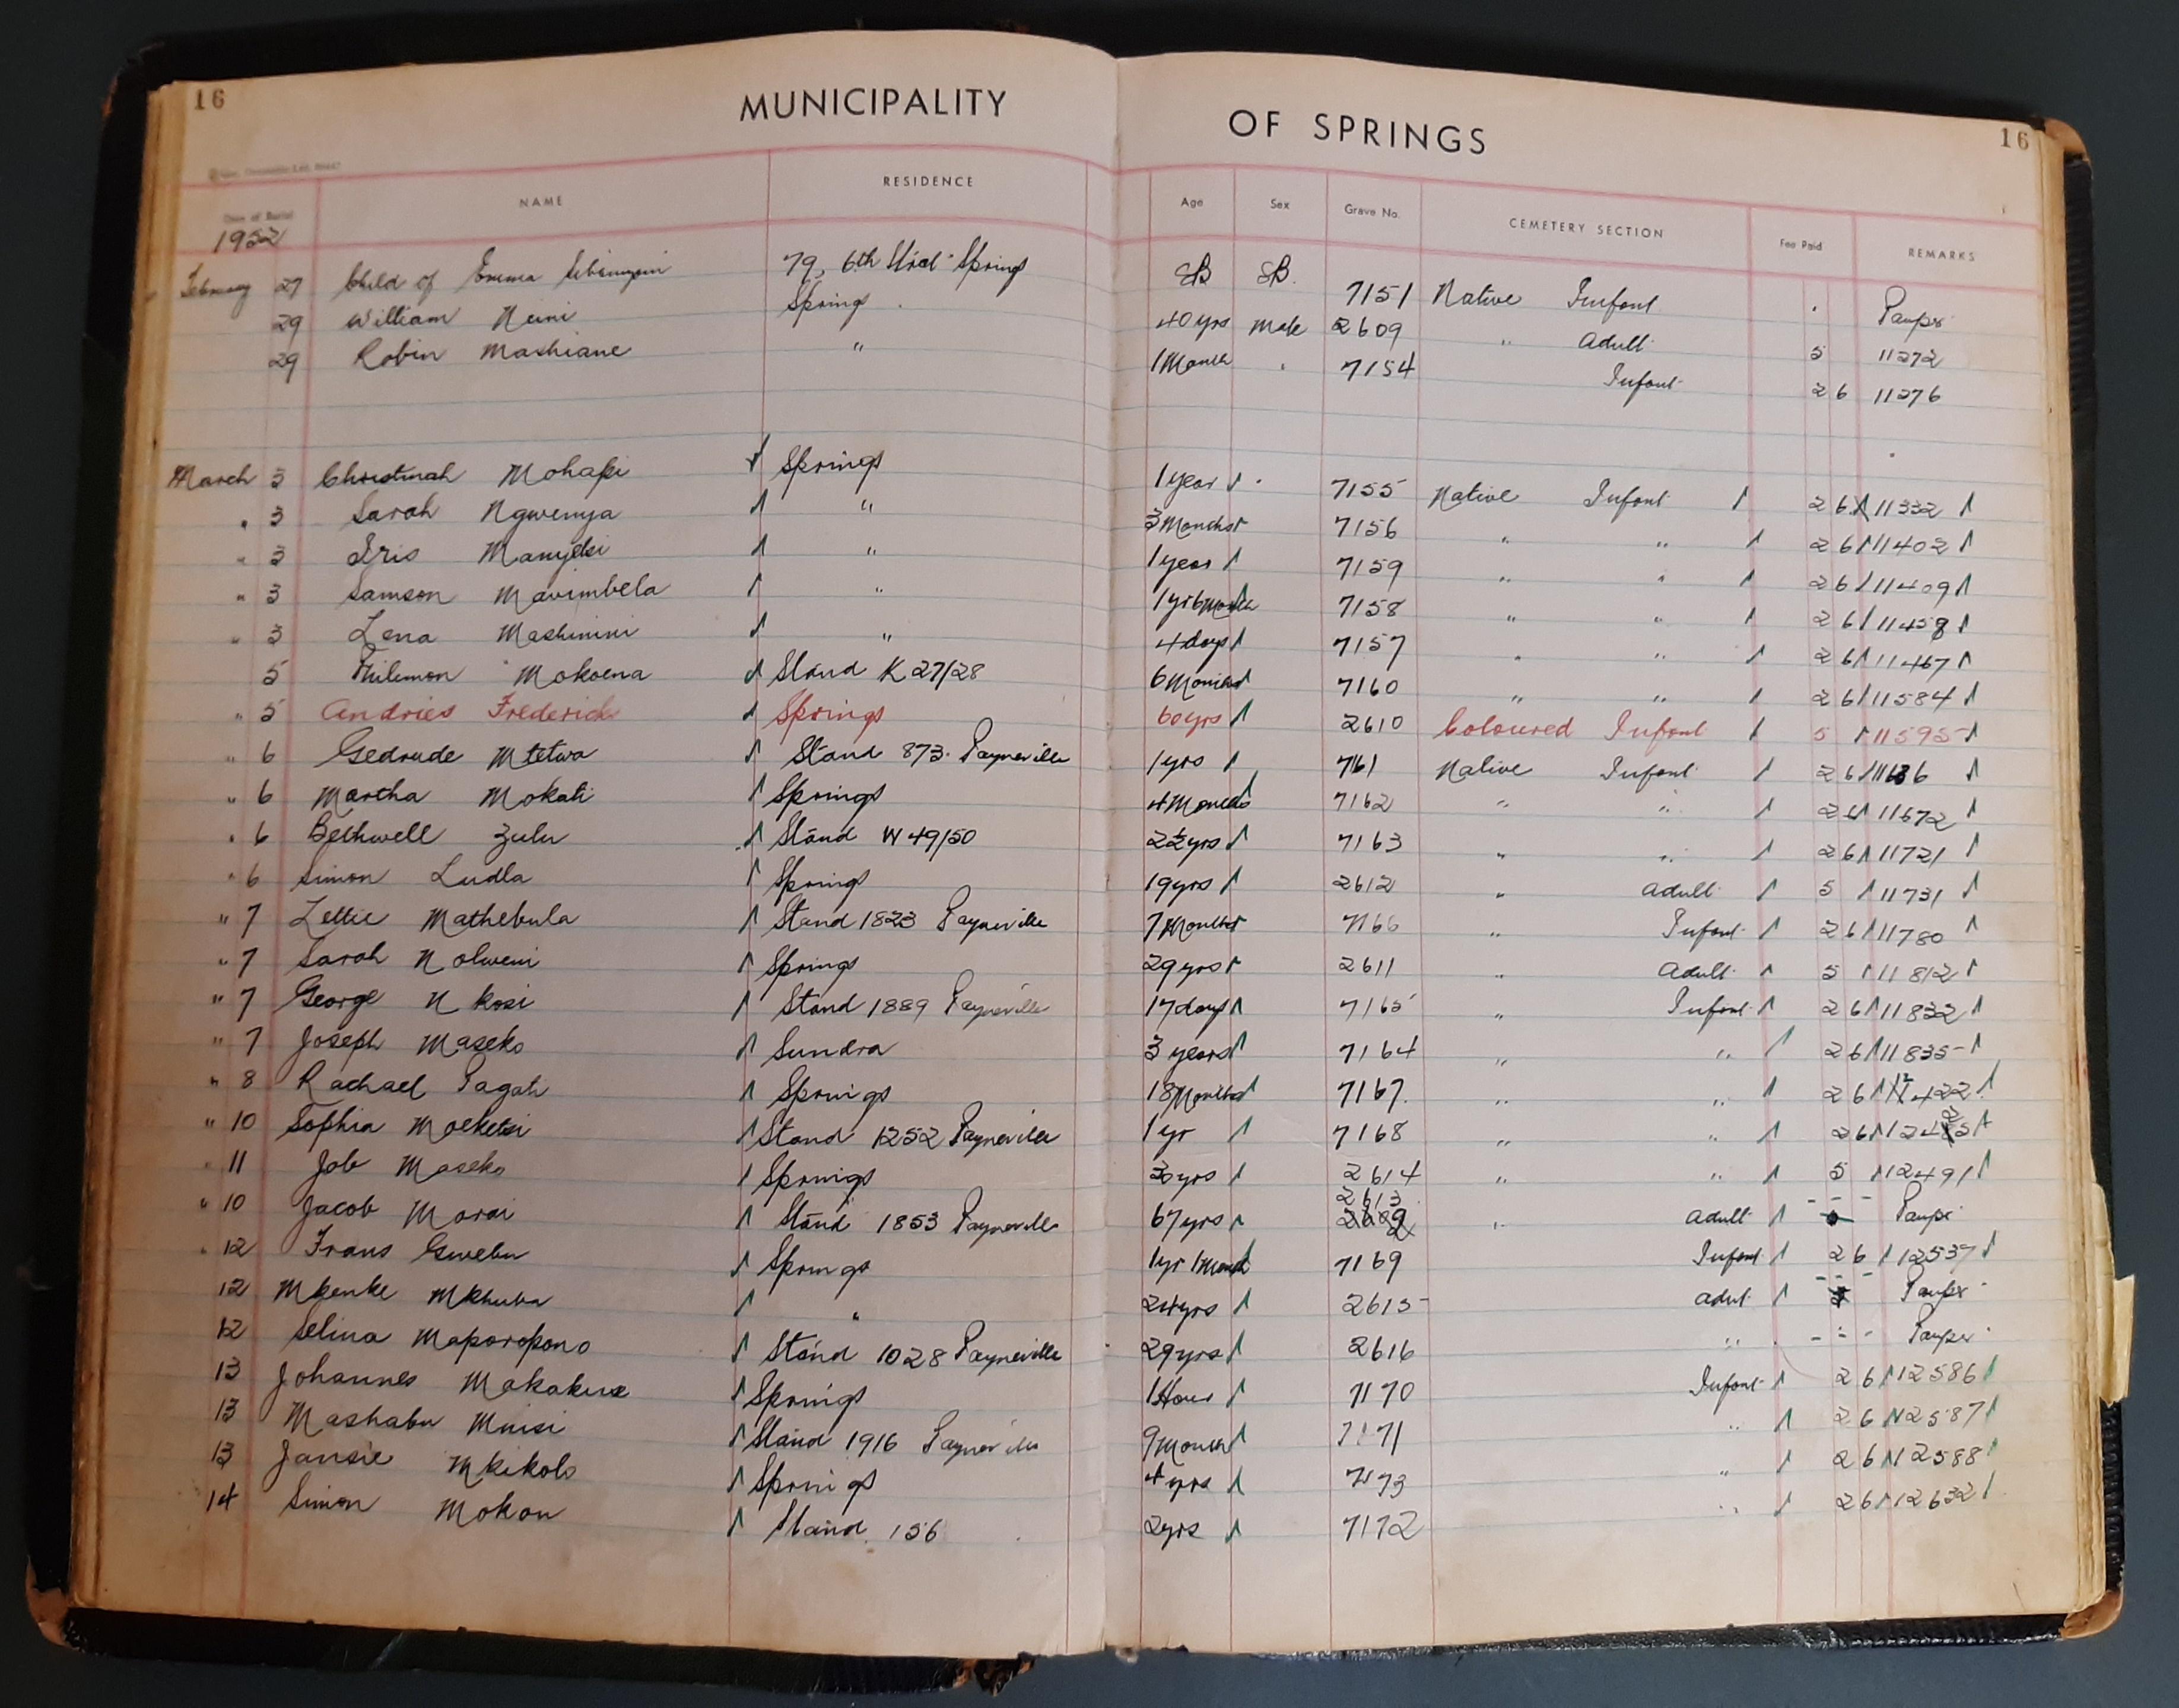 16 MUNICIPALITY OF SPRINGS 16
Date of Burial NAME RESIDENCE Age Sex Grave No. CEMETERY SECTION Fee Paid REMARKS
1952
February 27 Child of Emma 79, 6th Springs SB SB. 7151 Native Infant Pauper
29 William Neini Springs 40 yrs male 2609 " Adult 5 11272
29 Robin Mashiane " 1 Month 7154 Infant 2 6 11276
March 3 Christinah Mohapi Springs 1 year 7155 Native Infant 2 6 11332
" 3 Sarah Ngwenya " 3 Months 7156 " " 2 6 11402
" 3 Iris Manyetsi " 1 year 7159 " " 2 6 11409
" 3 Samson Mavimbela " 1 yr 6 Month 7158 " " 2 6 11458
" 3 Lena Mashinini " 4 days 7157 " " 2 6 11467
5 Philemon Mokoena Stand K 27/28 6 Months 7160 " " 2 6 11584
" 5 Andries Frederick Springs 60 yrs 2610 Coloured Infant 5 11595
" 6 Gedrude Mtetwa Stand 873 Payneville 1 yrs 7161 Native Infant 2 6 11636
" 6 Martha Mokati Springs 4 Months 7162 " " 2 6 11672
" 6 Bethwell Zulu Stand W 49/50 2½ yrs 7163 " " 2 6 11721
" 6 Simon Ludla Springs 19 yrs 2612 " Adult 5 11731
" 7 Lettie Mathebula Stand 1823 Payneville 7 Months 7166 " Infant 2 6 11780
" 7 Sarah Nolweni Springs 29 yrs 2611 " Adult 5 11812
" 7 George Nkosi Stand 1889 Payneville 17 days 7165 " Infant 2 6 11832
" 7 Joseph Maseko Sundra 3 years 7164 " " 2 6 11835
" 8 Rachael Pagati Springs 18 Months 7167 " " 2 6 12422
" 10 Sophia Moeketsi Stand 1252 Payneville 1 yr 7168 " " 2 6
" 11 Job Maseko Springs yrs 2614 " " 5 12491
" 10 Jacob Morai Stand 1853 Payneville 67 yrs 2613 " Adult - - - Pauper
" 12 Frans Gwebu Springs 1 yr 1 Month 7169 Infant 2 6 12537
12 Mkenke Mkhuba " 24 yrs 2615 Adult - - - Pauper
12 Selina Maporopono Stand 1028 Payneville 29 yrs 2616 " - - - Pauper
13 Johannes Makakure Springs 1 Hour 7170 Infant 2 6 12586
13 Mashabu Mnisi Stand 1916 Payneville 9 Months 7171 " 2 6 12587
13 Jansie Mkikolo Springs 4 yrs 7173 " 2 6 12588
14 Simon Mokou Stand 156 2 yrs 7172 " 2 6 12632